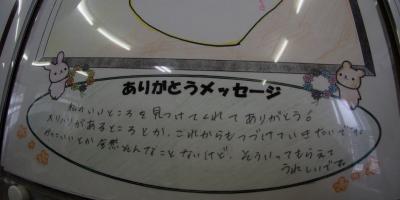 ありがとうメッセージ
私のいいところを見つけてくれてありがとう。
メリハリがあるところとか、これからもつづけていきたいです。
かっこいいとか全然そんなことないけど、そういってもらえて
うれしいです